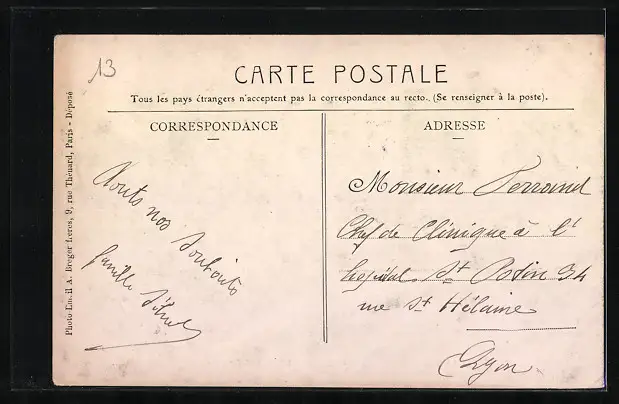 13
CARTE POSTALE
Tous les pays étrangers n'acceptent pas la correspondance au recto. (Se renseigner à la poste).
CORRESPONDANCE
ADRESSE
nos Souhaits
famille
Monsieur Ferrand
Chef de Clinique à l'
hopital St Potin 34
rue St Hélaine
Lyon
Photo Em. il A. Breger freres, 9, rue Thénard, Paris - Déposé